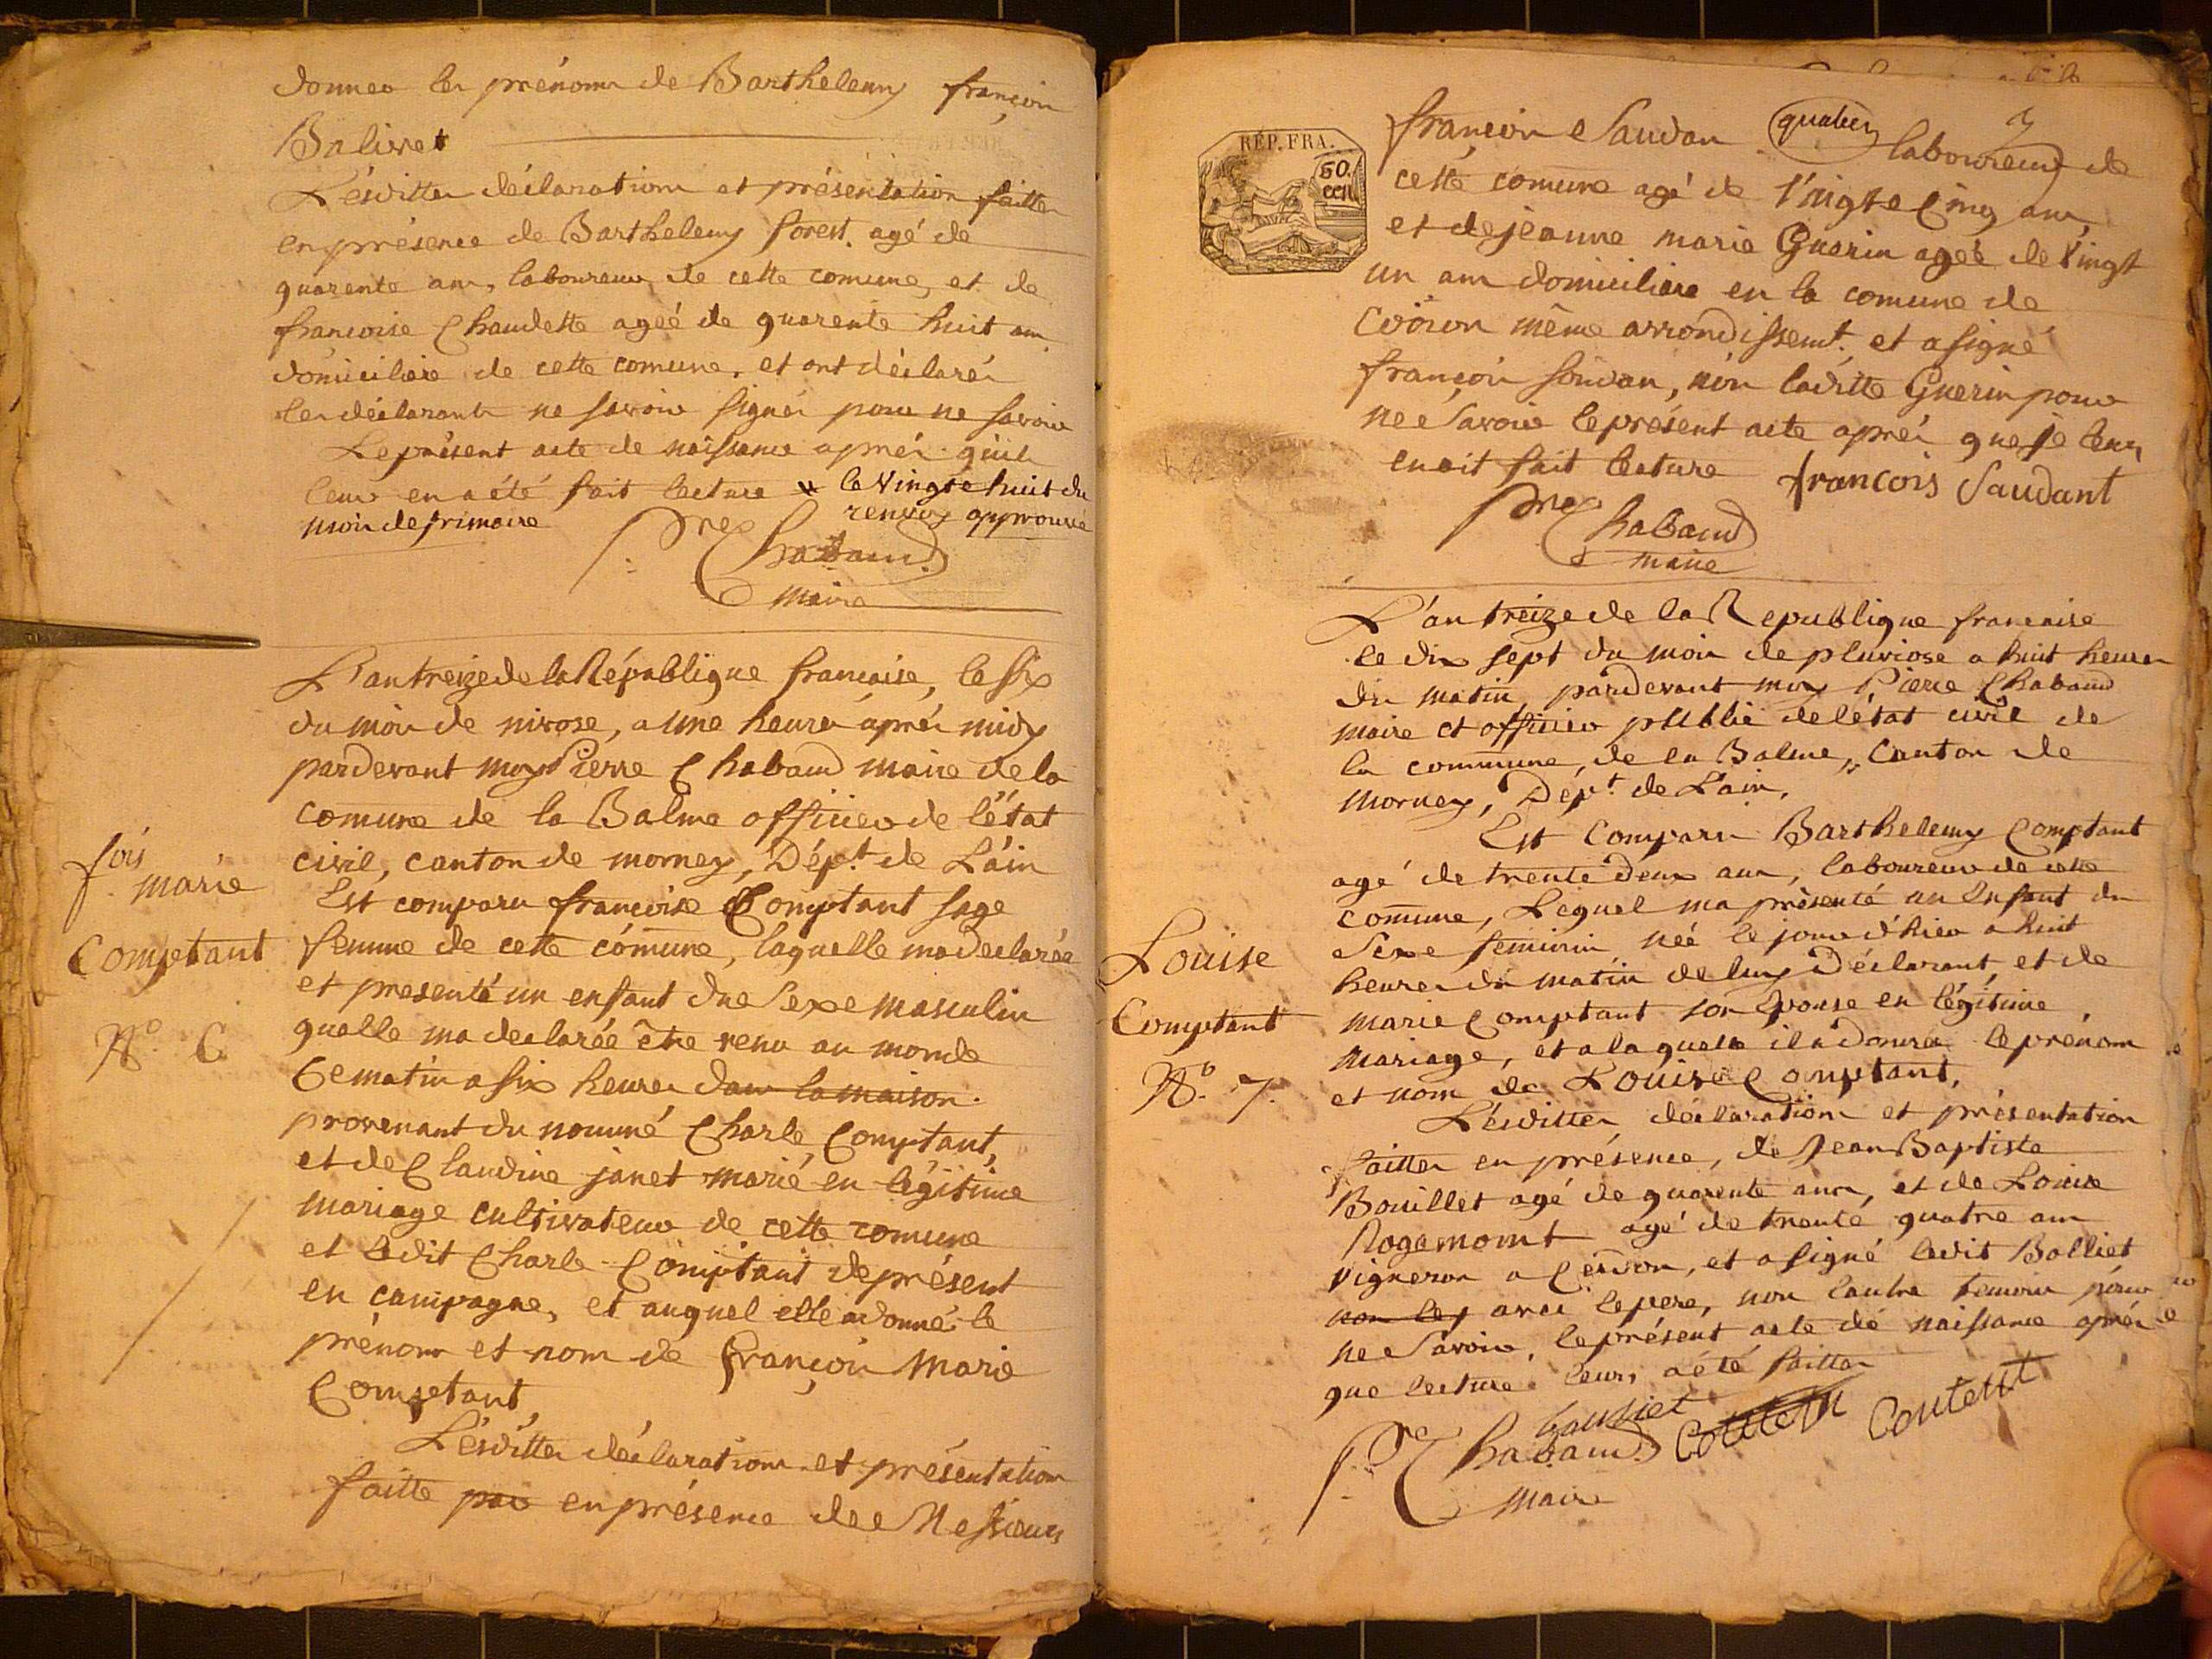 donner les prénoms de Barthelemy françois
Balivet
Lésdittes déclarations et présentation faittes
en présence de Barthelemy forest, agé de
quarente ans, laboureur de cette comune, et de
francoise Chaudette ageé de quarente huit ans
domiciliere de cette comune. et ont déclarés
les déclarants ne savoir signér pour ne savoir
Le présent acte de naissance aprés quil
leur en a été fait lecture le Vingte huit du
mois de frimaire renvoy approuvé
Pre Chabaud
maire
fois
marie
Comptant
No. 6
L'an treize de la République francaise, le six
du mois de nivose, a une heure aprés midy
pardevant moy Pierre Chabaud maire de la
comune de la Balme officier de l'état
civil, canton de mornay, Dépt. de Láin
Est comparu francoise Comptant sage
femme de cette comune, laquelle ma declarée
et presenté un enfant du Sexe masculin
quelle ma declarée être venu au monde
Ce matin a six heures dans la maison
provenant du nommé Charle Comptant,
et de Claudine janet marié en légitime
mariage cultivateur de cette comune
et ledit Charle Comptant de présent
en campagne, et auquel elle a donné le
prénom et nom de françois Marie
Comptant,
Lésditte déclarations et présentation
faitte par en présence de Messieurs
RÉP. FRA.
50.
cen
françois Saudan laboureur de
cette comune agé de Vingt e Cinq ans
et de jeanne marie Guerin ageé de Vingt
un ans domiciliere en la comune de
même arrondissemt. et a signé
françois soudan, nón laditte Guerin pour
ne Savoir le présent acte aprés que je leur
en ait fait lecture francois Saudant
Pre Chabaud
maire
L'an treize de la Republique francaise
le dix sept du mois de pluviose a huit heures
du matin pardevant moy Pierre Chabaud
maire et officier publié de létat civil de
la commune, de la Balme, Canton de
Mornay, Dépt. de Lain,
Est Comparu Barthelemy Comptant
agé de trente deux ans, laboureur de cette
commune, Lequel ma présenté un Enfant du
Sexe feminin neé le jour d'hier a huit
heures du matin de luy Déclarant, et de
marie Comptant son Epouse en légitime
mariage, et a laquelle il a donné le prénom
et nom de Louise Comptant,
Louise
Comptant
No. 7.
Lésdittes déclaration et présentation
faittes en présence, de Jean Baptiste
Bouillet agé de quarente ans, et de Louis
Rogemomt agé de trente quatre ans
Vigneron a Cerdon, et a signé ledit Bolliet
non les avec le pere, non lautre temoin pour
ne Savoir, le présent acte de naissance aprés
que lecture leurs a été faittes
Pre Chabaud Content
maire